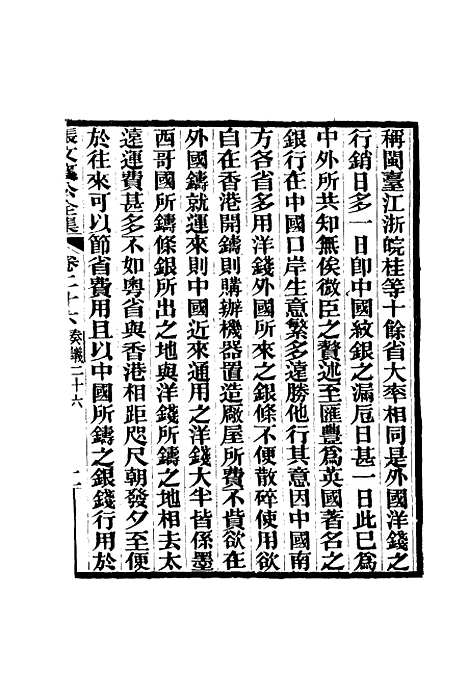 稱閩臺江浙皖桂等十餘省大率相同是外國洋錢之
行銷日多一日卽中國紋銀之漏卮日甚一日此已爲
中外所共知無俟微臣之贅述至匯豐爲英國著名之
銀行在中國口岸生意繁多遠勝他行其意因中國南
方各省多用洋錢外國所來之銀條不便散碎使用欲
自在香港開鑄則購辦機器置造廠屋所費不貲欲在
外國鑄就運來則中國近來通用之洋錢大半皆係墨
西哥國所鑄條銀所出之地與洋錢所鑄之地相去太
遠運費甚多不如粤省與香港相距咫尺朝發夕至便
於往來可以節省費用且以中國所鑄之銀錢行用於
張文襄公全集 卷二十六 奏議二十六